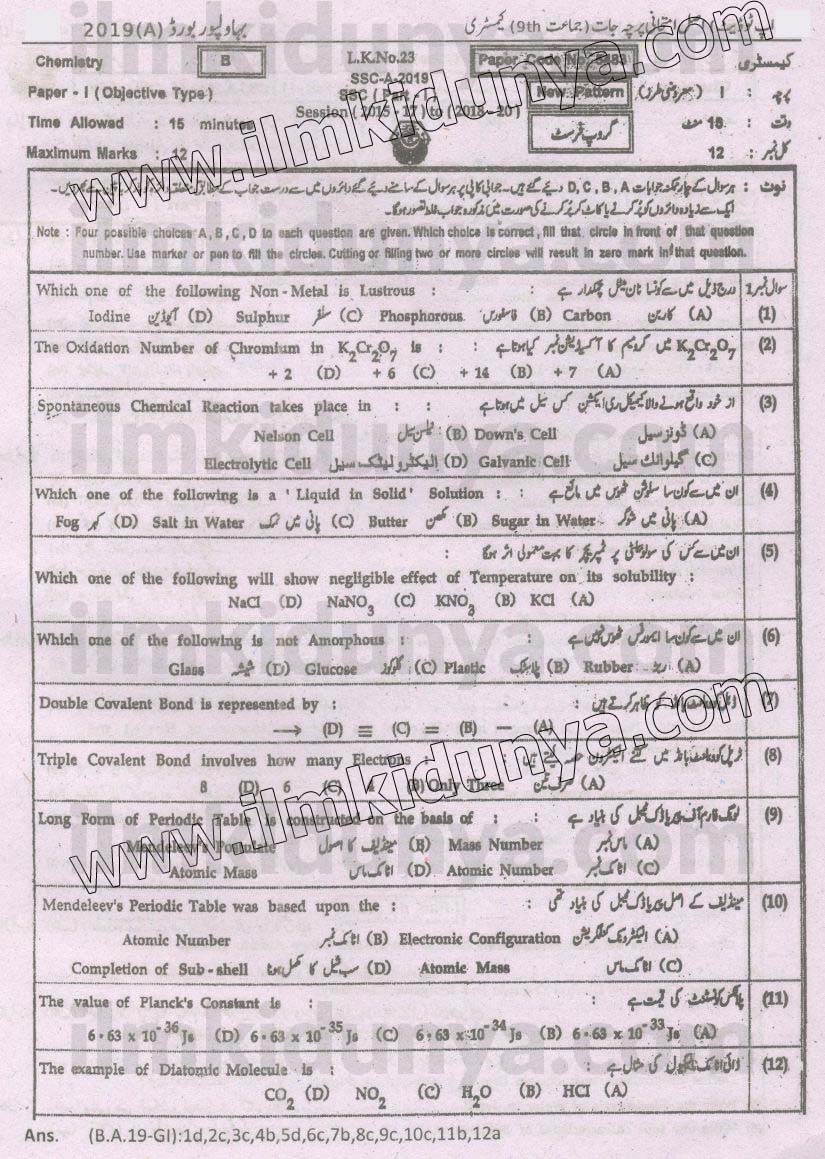 2019(A) بہاولپور بورڈ
پرچہ جات (جماعت 9th) کیمسٹری
Chemistry B L.K.No.23 Paper Code No کیمسٹری
SSC-A-2019
Paper - I (Objective Type) New Pattern I : پرچہ
Session (2015 - 17) to (2018 - 20)
Time Allowed : 15 minutes گروپ فرسٹ وقت : 15 منٹ
Maximum Marks : 12 کل نمبر : 12
Note : Four possible choices A, B, C, D to each question are given. Which choice is correct, fill that circle in front of that question
number. Use marker or pen to fill the circles. Cutting or filling two or more circles will result in zero mark in that question
Which one of the following Non - Metal is Lustrous : : درج ذیل میں سے کونسا نان میٹل چمکدار ہے سوال نمبر 1
(1) (A) کاربن Carbon (B) فاسفورس Phosphorous (C) سلفر Sulphur (D) آیوڈین Iodine
The Oxidation Number of Chromium in K₂Cr₂O₇ is : : K₂Cr₂O₇ میں کرومیم کا آکسیڈیشن نمبر کیا ہوتا ہے (2)
+ 2 (D) + 6 (C) + 14 (B) + 7 (A)
Spontaneous Chemical Reaction takes place in : : از خود واقع ہونے والا کیمیکل ری ایکشن کس سیل میں ہوتا ہے (3)
Nelson Cell نیلسن سیل (B) Down's Cell ڈونز سیل (A)
Electrolytic Cell الیکٹرولیٹک سیل (D) Galvanic Cell گیلوانک سیل (C)
Which one of the following is a 'Liquid in Solid' Solution : : ان میں سے کون سا سلوشن ٹھوس میں مائع ہے (4)
Fog کہر (D) Salt in Water پانی میں نمک (C) Butter مکھن (B) Sugar in Water پانی میں شوگر (A)
ان میں سے کس کی سولوبیلٹی پر ٹمپریچر کا بہت معمولی اثر ہوگا : (5)
Which one of the following will show negligible effect of Temperature on its solubility :
NaCl (D) NaNO₃ (C) KNO₃ (B) KCl (A)
Which one of the following is not Amorphous : : ان میں سے کون سا ایمورفس ٹھوس نہیں ہے (6)
Glass شیشہ (D) Glucose گلوکوز (C) Plastic پلاسٹک (B) Rubber ربڑ (A)
Double Covalent Bond is represented by : (7)
⟶ (D) ≡ (C) = (B) — (A)
Triple Covalent Bond involves how many Electrons : (8)
8 (D) 6 (C) (B) Only Three صرف تین (A)
Long Form of Periodic Table is constructed on the basis of : : لونگ فارم آف پیریاڈک ٹیبل کی بنیاد ہے (9)
Mendeleev's Postulate مینڈلیف کا اصول (B) Mass Number ماس نمبر (A)
Atomic Mass اٹامک ماس (D) Atomic Number اٹامک نمبر (C)
Mendeleev's Periodic Table was based upon the : مینڈلیف کے اصل پیریاڈک ٹیبل کی بنیاد تھی (10)
Atomic Number اٹامک نمبر (B) Electronic Configuration الیکٹرونک کنفگریشن (A)
Completion of Sub - shell سب شیل کا مکمل ہونا (D) Atomic Mass اٹامک ماس (C)
The value of Planck's Constant is : : پلانکس کونسٹنٹ کی قیمت ہے (11)
6·63 x 10⁻³⁶ Js (D) 6·63 x 10⁻³⁵ Js (C) 6·63 x 10⁻³⁴ Js (B) 6·63 x 10⁻³³ Js (A)
The example of Diatomic Molecule is : : ڈائی اٹامک مالیکیول کی مثال ہے (12)
CO₂ (D) NO₂ (C) H₂O (B) HCl (A)
Ans. (B.A.19-GI):1d,2c,3c,4b,5d,6c,7b,8c,9c,10c,11b,12a
www.ilmkidunya.com
www.ilmkidunya.com